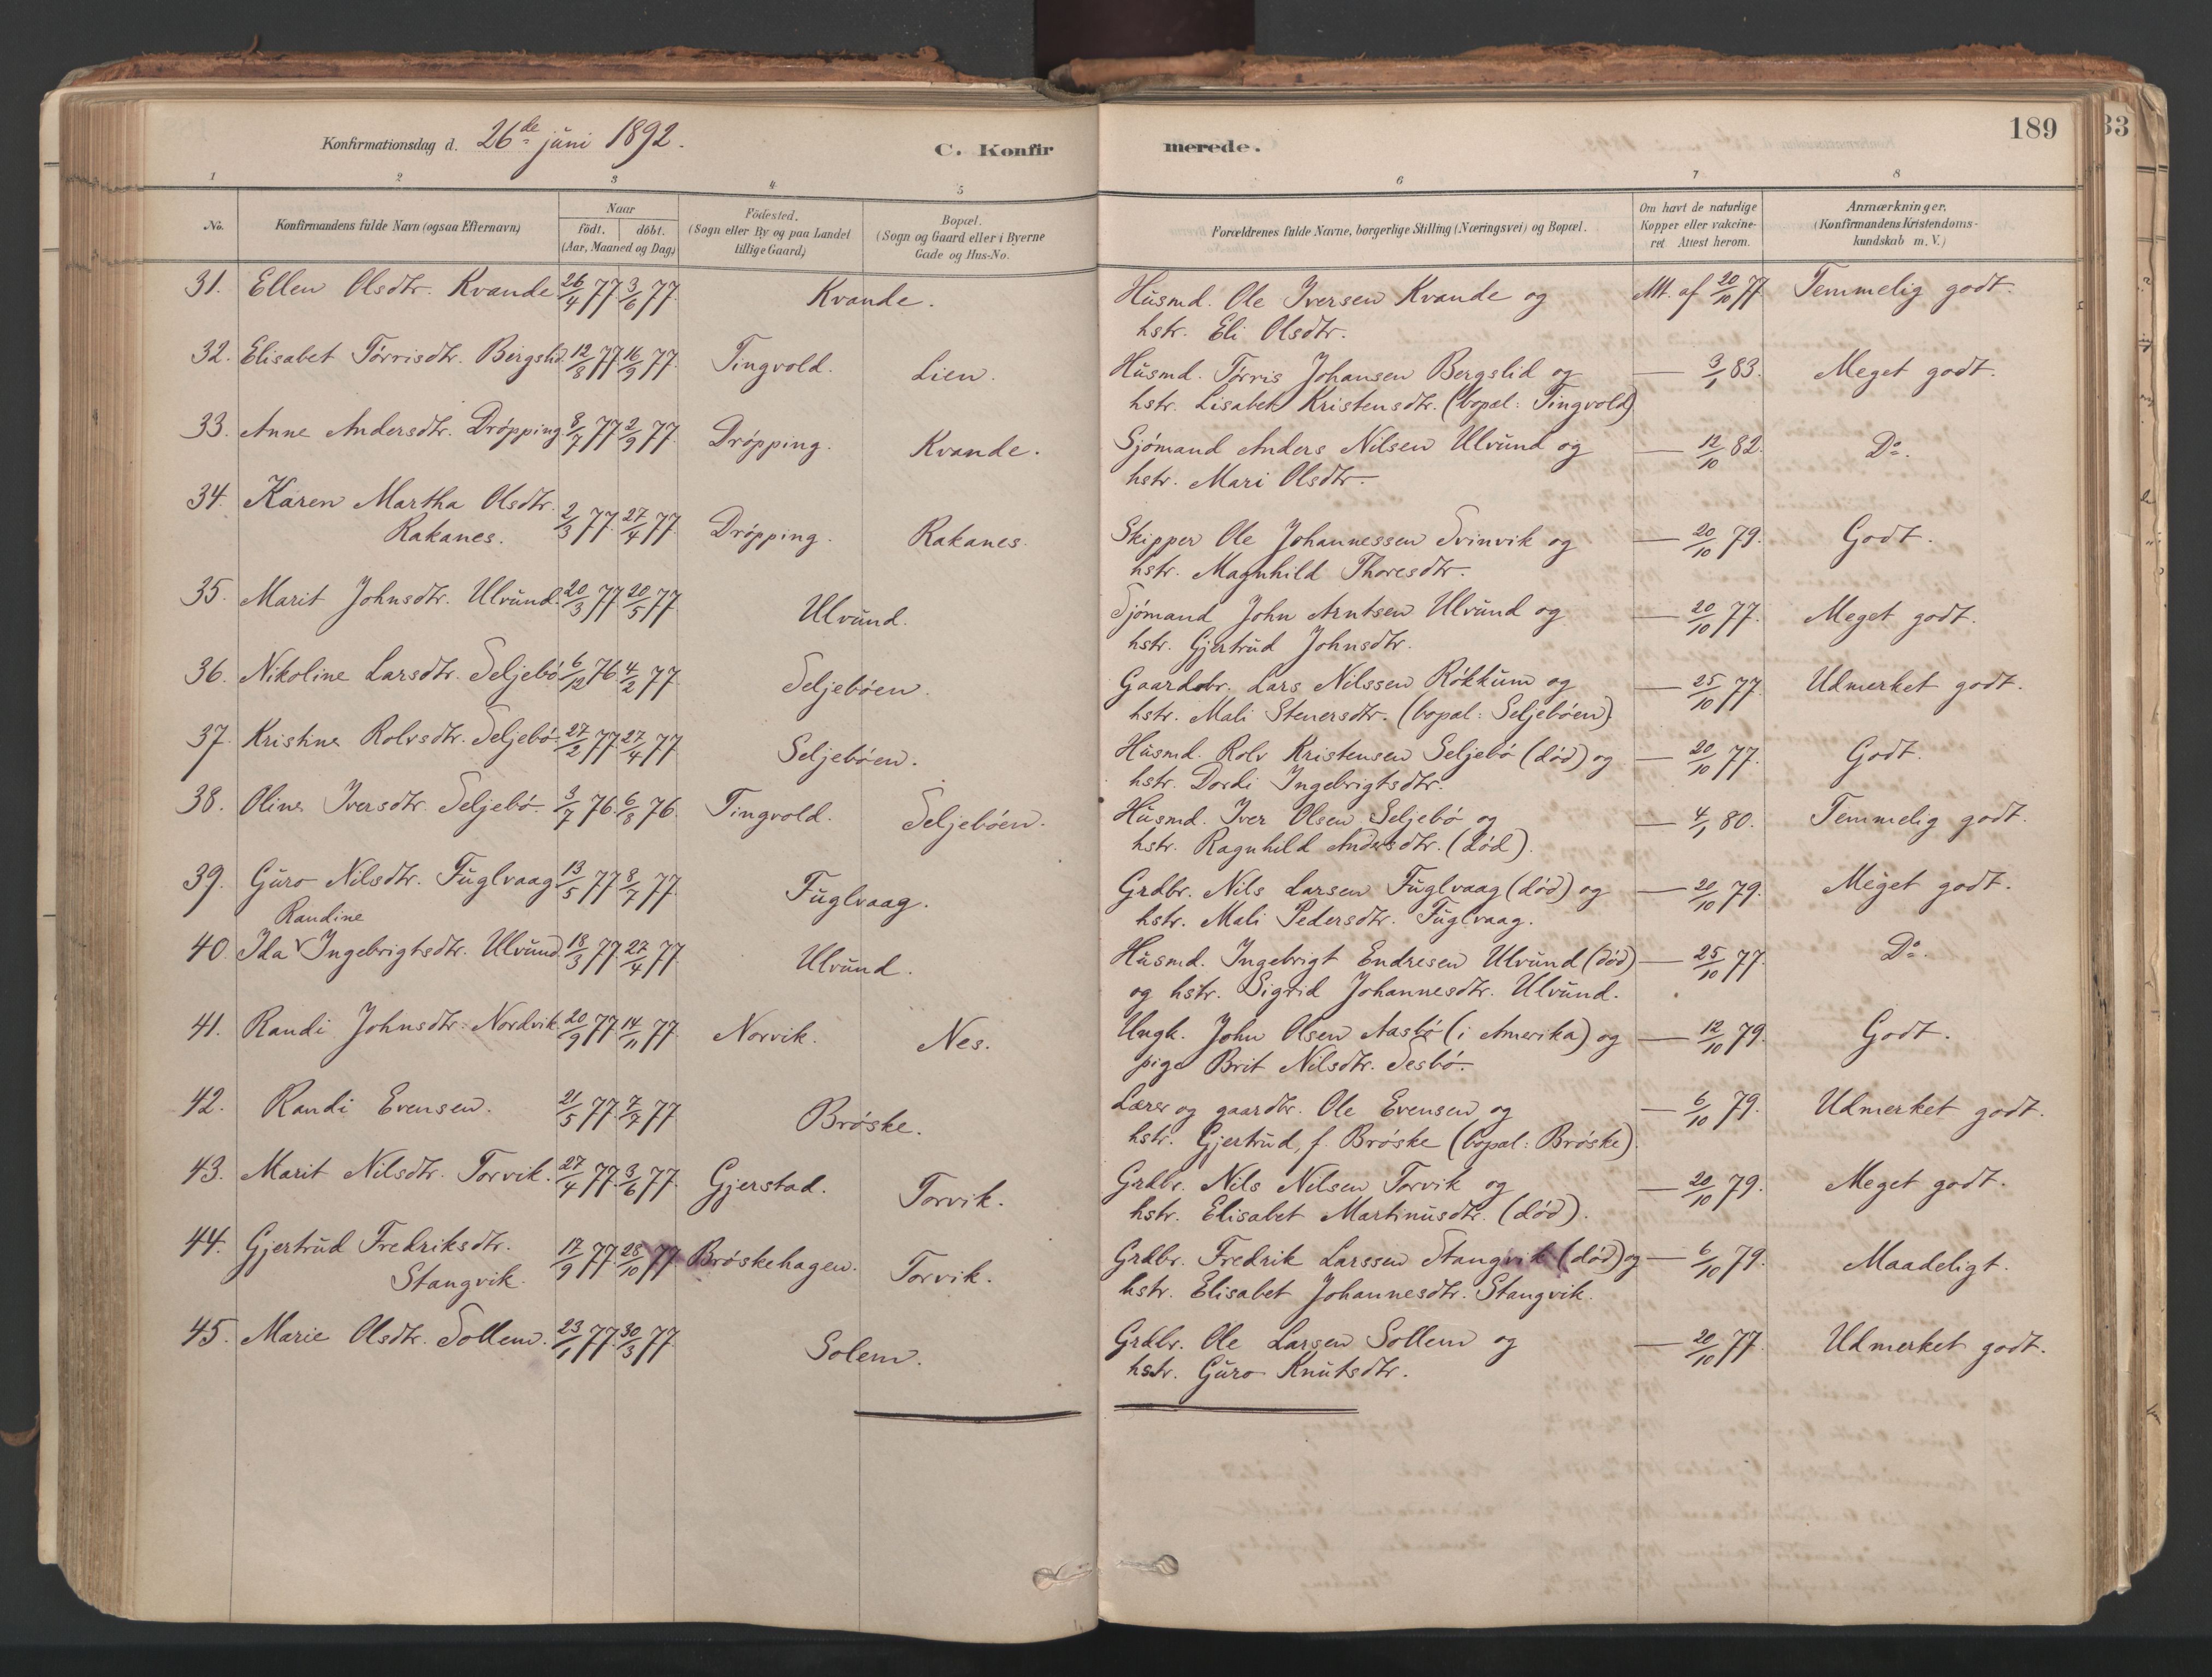 Konfirmationsdag d. 26de juni 1892.
C. Konfirmerede.
189
33
1 2 3 4 5 6 7 8
No.
Konfirmandens fulde Navn (ogsaa Efternavn)
Naar
födt. döbt.
(Aar, Maaned og Dag)
Födested.
(Sogn eller By og paa Landet
tillige Gaard)
Bopæl.
(Sogn og Gaard eller i Byerne
Gade og Hus-No.
Forældrenes fulde Navne, borgerlige Stilling (Næringsvei) og Bopæl.
Om havt de naturlige
Kopper eller vakcine-
ret Attest herom.
Anmærkninger.
(Konfirmandens Kristendoms-
kundskab m. V.)
31. Ellen Olsdtr. Kvande 26/4 77. 3/6 77. Kvande. Husmd. Ole Iversen Kvande og Att. af 20/10 77 Temmelig godt.
hstr. Eli Olsdtr.
32. Elisabet Törrisdtr. Bergslid 12/8 77. 16/9 77. Tingvold. Lien. Husmd. Törris Johansen Bergslid og — 3/1 83. Meget godt.
hstr. Lisabet Kristensdtr. (bopæl: Tingvold)
33. Anne Andersdtr. Dröpping 8/7 77 2/9 77. Dröpping. Kvande. Sjömand Anders Nilsen Ulvund og — 12/10 82. Do.
hstr. Mari Olsdtr.
34. Karen Martha Olsdtr.
Rakanes. 2/3 77. 27/4 77. Dröpping. Rakanes. Skipper Ole Johannessen Svinvik og — 20/10 79. Godt.
hstr. Magnhild Thoresdtr.
35. Marit Johnsdtr. Ulvund. 20/3 77 20/5 77. Ulvund. Sjömand John Arntsen Ulvund og — 20/10 77. Meget godt.
hstr. Gjertrud Johnsdtr.
36. Nikoline Larsdtr. Seljebö 6/12 76. 4/2 77. Seljeböen. Gaardbr. Lars Nilssen Rökkum og — 25/10 77. Udmerket godt.
hstr. Mali Stenersdtr. (bopæl: Seljeböen).
37. Kristine Rolvsdtr. Seljebö 27/2 77. 27/4 77. Seljeböen. Husmd. Rolv Kristensen Seljebö (död) og — 20/10 77. Godt.
hstr. Dordi Ingebrigtsdtr.
38. Oline Iversdtr. Seljebö 3/7 76. 6/8 76. Tingvold. Seljeböen. Husmd. Iver Olsen Seljebö og — 4/1 80. Temmelig godt.
hstr. Ragnhild Andersdtr. (död).
39. Guro Nilsdtr. Fuglvaag 13/5 77 8/7 77. Fuglvaag. Grdbr. Nils Larsen Fuglvaag (död) og — 20/10 79. Meget godt.
hstr. Mali Pedersdtr. Fuglvaag.
Randine
40. Ida Ingebrigtsdtr. Ulvund. 18/3 77. 27/4 77. Ulvund. Husmd. Ingebrigt Endresen Ulvund (död) — 25/10 77. Do.
og hstr. Sigrid Johannesdtr. Ulvund.
41. Randi Johnsdtr. Nordvik 20/9 77 14/11 77. Norvik. Nes. Ungk. John Olsen Aasbö (i Amerika) og — 12/10 79. Godt.
pige Brit Nilsdtr. Sesbö.
42. Randi Evensen. 21/5 77. 7/7 77 Bröske. Lærer og gaardbr. Ole Evensen og — 6/10 79. Udmerket godt.
hstr. Gjertrud, f. Bröske (bopæl: Bröske)
43. Marit Nilsdtr. Torvik. 27/4 77. 3/6 77. Gjerstad. Torvik. Grdbr. Nils Nilsen Torvik og — 20/10 79. Meget godt.
hstr. Elisabet Martinusdtr. (död).
44. Gjertrud Fredriksdtr.
Stangvik. 17/9 77. 28/10 77 Bröskehagen. Torvik. Grdbr. Fredrik Larssen Stangvik (död) og — 6/10 79. Maadeligt.
hstr. Elisabet Johannesdtr. Stangvik.
45. Marie Olsdtr. Sollem. 23/1 77. 30/3 77. Solem. Grdbr. Ole Larsen Sollem og — 20/10 77. Udmerket godt.
hstr. Guro Knutsdtr.